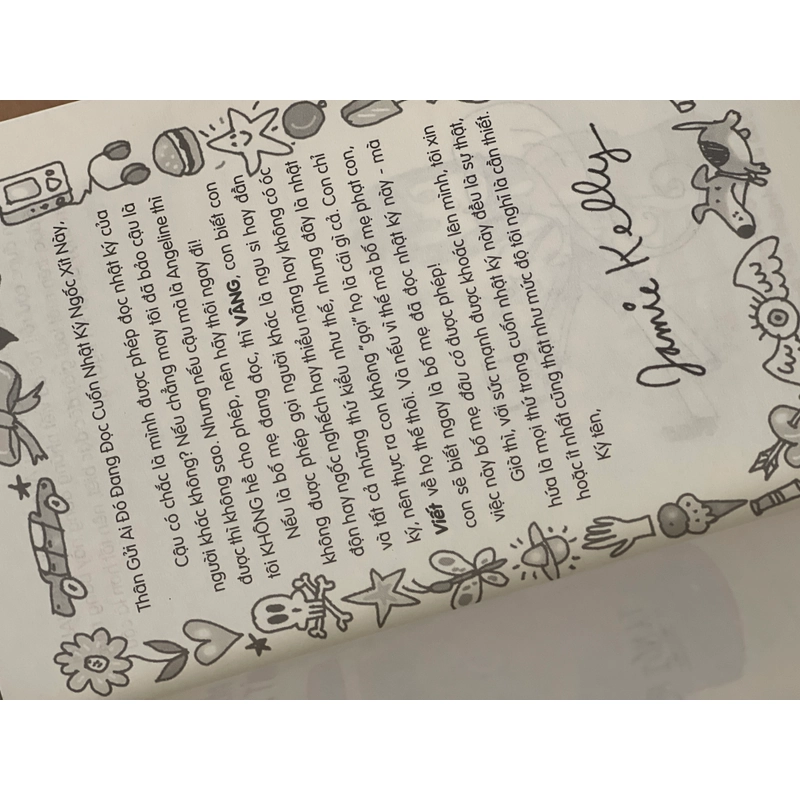 Thân Gửi Ai Đó Đang Đọc Cuốn Nhật Ký Ngốc Xít Này,
Cậu có chắc là mình được phép đọc nhật ký của
người khác không? Nếu chẳng may tôi đã bảo cậu là
được thì không sao. Nhưng nếu cậu mà là Angeline thì
tôi KHÔNG hề cho phép, nên hãy thôi ngay đi!
Nếu là bố mẹ đang đọc, thì VÂNG, con biết con
không được phép gọi người khác là ngu si hay đần
độn hay ngốc nghếch hay thiểu năng hay không có óc
và tất cả những thứ kiểu như thế, nhưng đây là nhật
ký, nên thực ra con không "gọi" họ là cái gì cả. Con chỉ
Viết về họ thế thôi. Và nếu vì thế mà bố mẹ phạt con,
con sẽ biết ngay là bố mẹ đã đọc nhật ký này - mà
việc này bố mẹ đâu có được phép!
Giờ thì, với sức mạnh được khoác lên mình, tôi xin
hứa là mọi thứ trong cuốn nhật ký này đều là sự thật,
hoặc ít nhất cũng thật như mức độ tôi nghĩ là cần thiết.
Ký tên,
Jamie Kelly